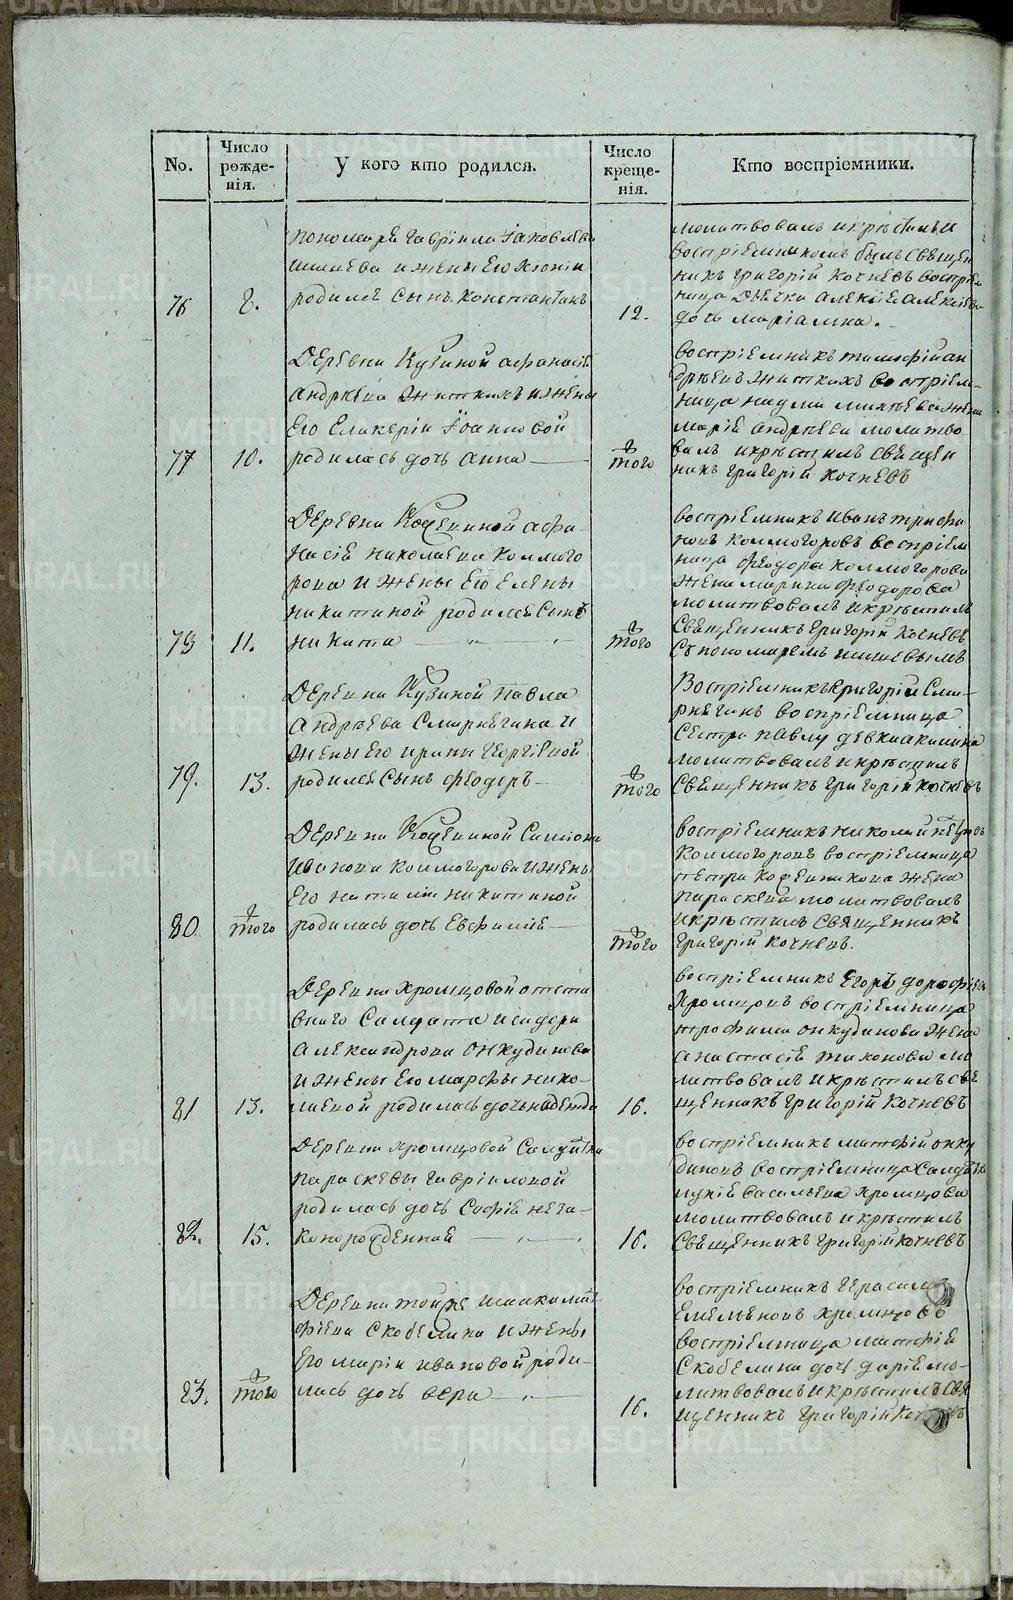 No.
Число рожде-
нія.
У кого кто родился.
Число креще-
нія.
Кто воспріемники.
76
8.
пономаря Гавріила Іаковлева
и жены Его Хіоніи
родился сынъ Константинъ
12.
молитвовалъ и крѣстилъ и
воспріемникомъ былъ свящѣн
никъ Григорій Кочневъ воспріем
ница Дѣвка
дочь Маріамна.
77
10.
Деревни Кузиной Афанасія
Андрѣева Житкихъ и жены
Его Гликеріи Іоанновой
родилась дочь Анна
того
воспріемникъ Тимофій Ан
дрѣевъ Житкихъ воспріем-
ница жена
Марія Андрѣева молитво
валъ и крѣстилъ свящѣн
никъ Григорій Кочневъ
78
11.
Деревни Кощкиной Афа-
насія Николаева Коллмого
рова и жены Его Елены
Никитиной родился сынъ
Никита
того
воспріемникъ Иванъ Трифа
новъ Коллмогоровъ воспріем
ница Феодора Коллмогорова
жена Марина Феодорова
молитвовалъ и крѣстилъ
Священникъ Григорій Кочневъ
съ пономаремъ
79.
13.
Деревни Кузиной Павла
Андрѣева Смирнягина и
жены Его Ирины Георгіевной
родился сынъ Феодоръ
того
Воспріемникъ Григорій Сми-
рнягинъ воспріемница
сестра Павлу девка Акилина
молитвовалъ и крѣстилъ
Священникъ Григорій Кочневъ
80
того
Деревни Кощкиной Симіона
Иванова Коллмогорова и жены
Его Наталіи Никитиной
родилась дочь Евфимія
того
воспріемникъ Николай Петровъ
Коллмогоровъ воспріемница
Петра жена
Параскева молитвовалъ
и крѣстилъ Священникъ
Григорій Кочневъ.
81
13.
Деревни Хромцовой отста
внаго Салдата Исидора
Александрова Онкудинова
и жены Его Марфы Нико-
лаевой родилась дочь Надежда
16.
воспріемникъ Егоръ Дорофіевъ
Хромцовъ воспріемница
Трофима Онкудинова жена
Анастасія Тихонова мо
литвовалъ и крѣстилъ свя
щенникъ Григорій Кочневъ
82.
15.
Деревни Хромцовой Салдатки
Параскевы Гавріиловой
родилась дочь Софія неза-
конорожденная
16.
воспріемникъ Матфій Онку
диновъ воспріемница Салдатка
Лукія Васильева Хромцова
молитвовалъ и крѣстилъ
Священникъ Григорій Кочневъ
83.
того
Деревни тойже Исаака Мат
фіева Скобелина и жены
Его Маріи Ивановой роди-
лась дочь Вера
16.
воспріемникъ Герасимъ
Емельяновъ Хромцовъ
воспріемница Матфія
Скобелина дочь Дарія мо-
литвовалъ и крѣстилъ Свя
щенникъ Григорій Кочневъ
METRIKI.GASO-URAL.RU